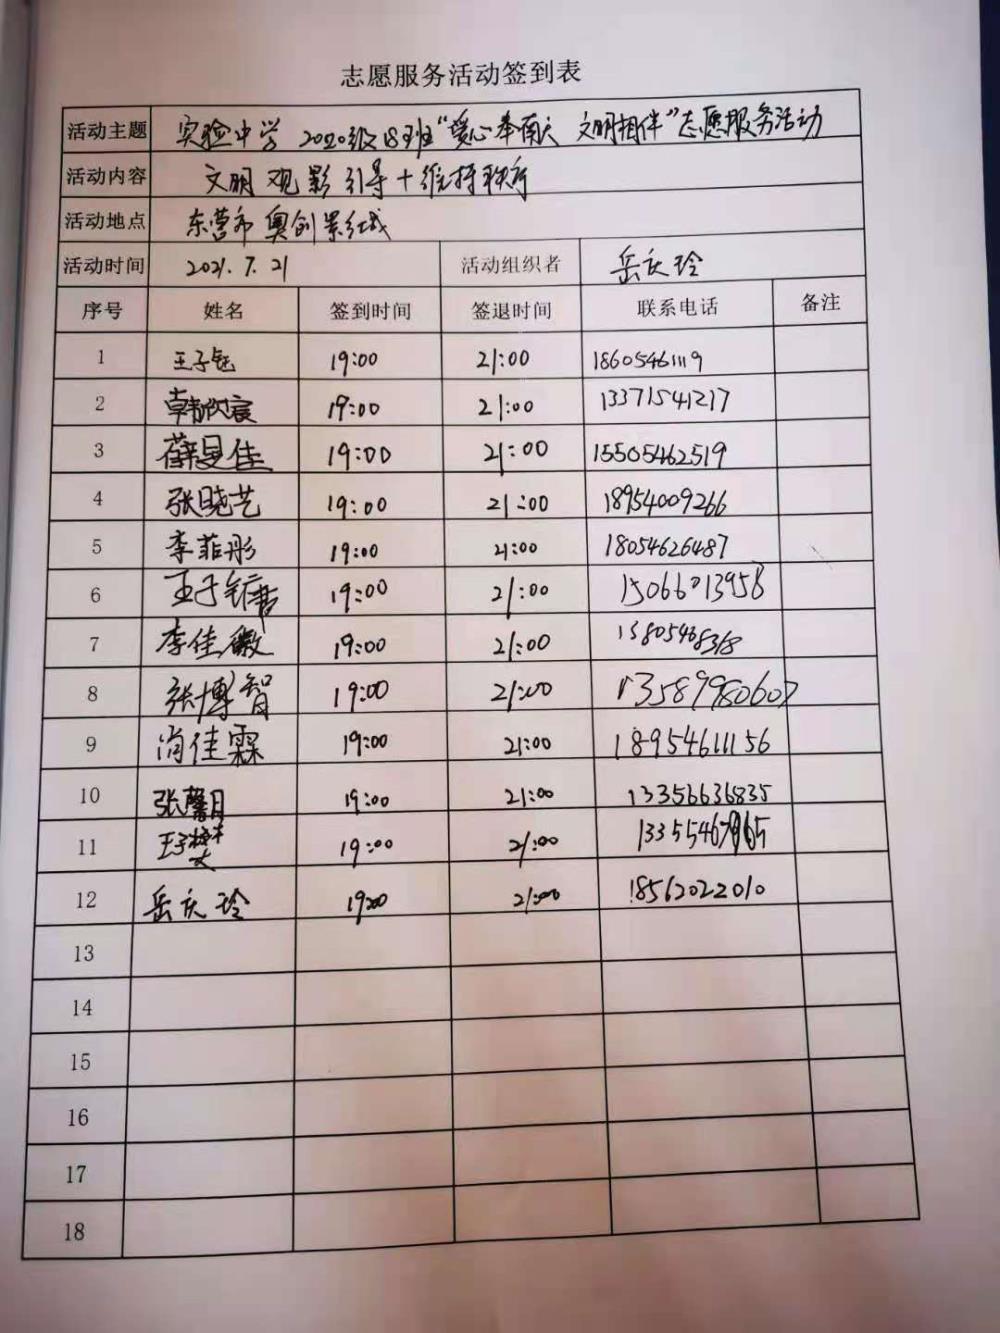 志愿服务活动签到表
活动主题 实验中学 2020级18班“爱心奉南天 文明相伴”志愿服务活动
活动内容 文明观影引导+维持秩序
活动地点 东营市奥创影城
活动时间 2021.7.21 活动组织者 岳庆玲
序号 姓名 签到时间 签退时间 联系电话 备注
1 王子钰 19:00 21:00 18605461119
2 韩欣宸 19:00 21:00 13371541217
3 薛旻佳 19:00 21:00 15505462519
4 张晓艺 19:00 21:00 18954009266
5 李菲彤 19:00 21:00 18054626487
6 王子 19:00 21:00 15066013958
7 李佳徽 19:00 21:00 13805468318
8 张博智 19:00 21:00 13589980607
9 尚佳霖 19:00 21:00 18954611156
10 张馨月 19:00 21:00 13356636835
11 王子 19:00 21:00
12 岳庆玲 19:00 21:00 18562022010
13
14
15
16
17
18